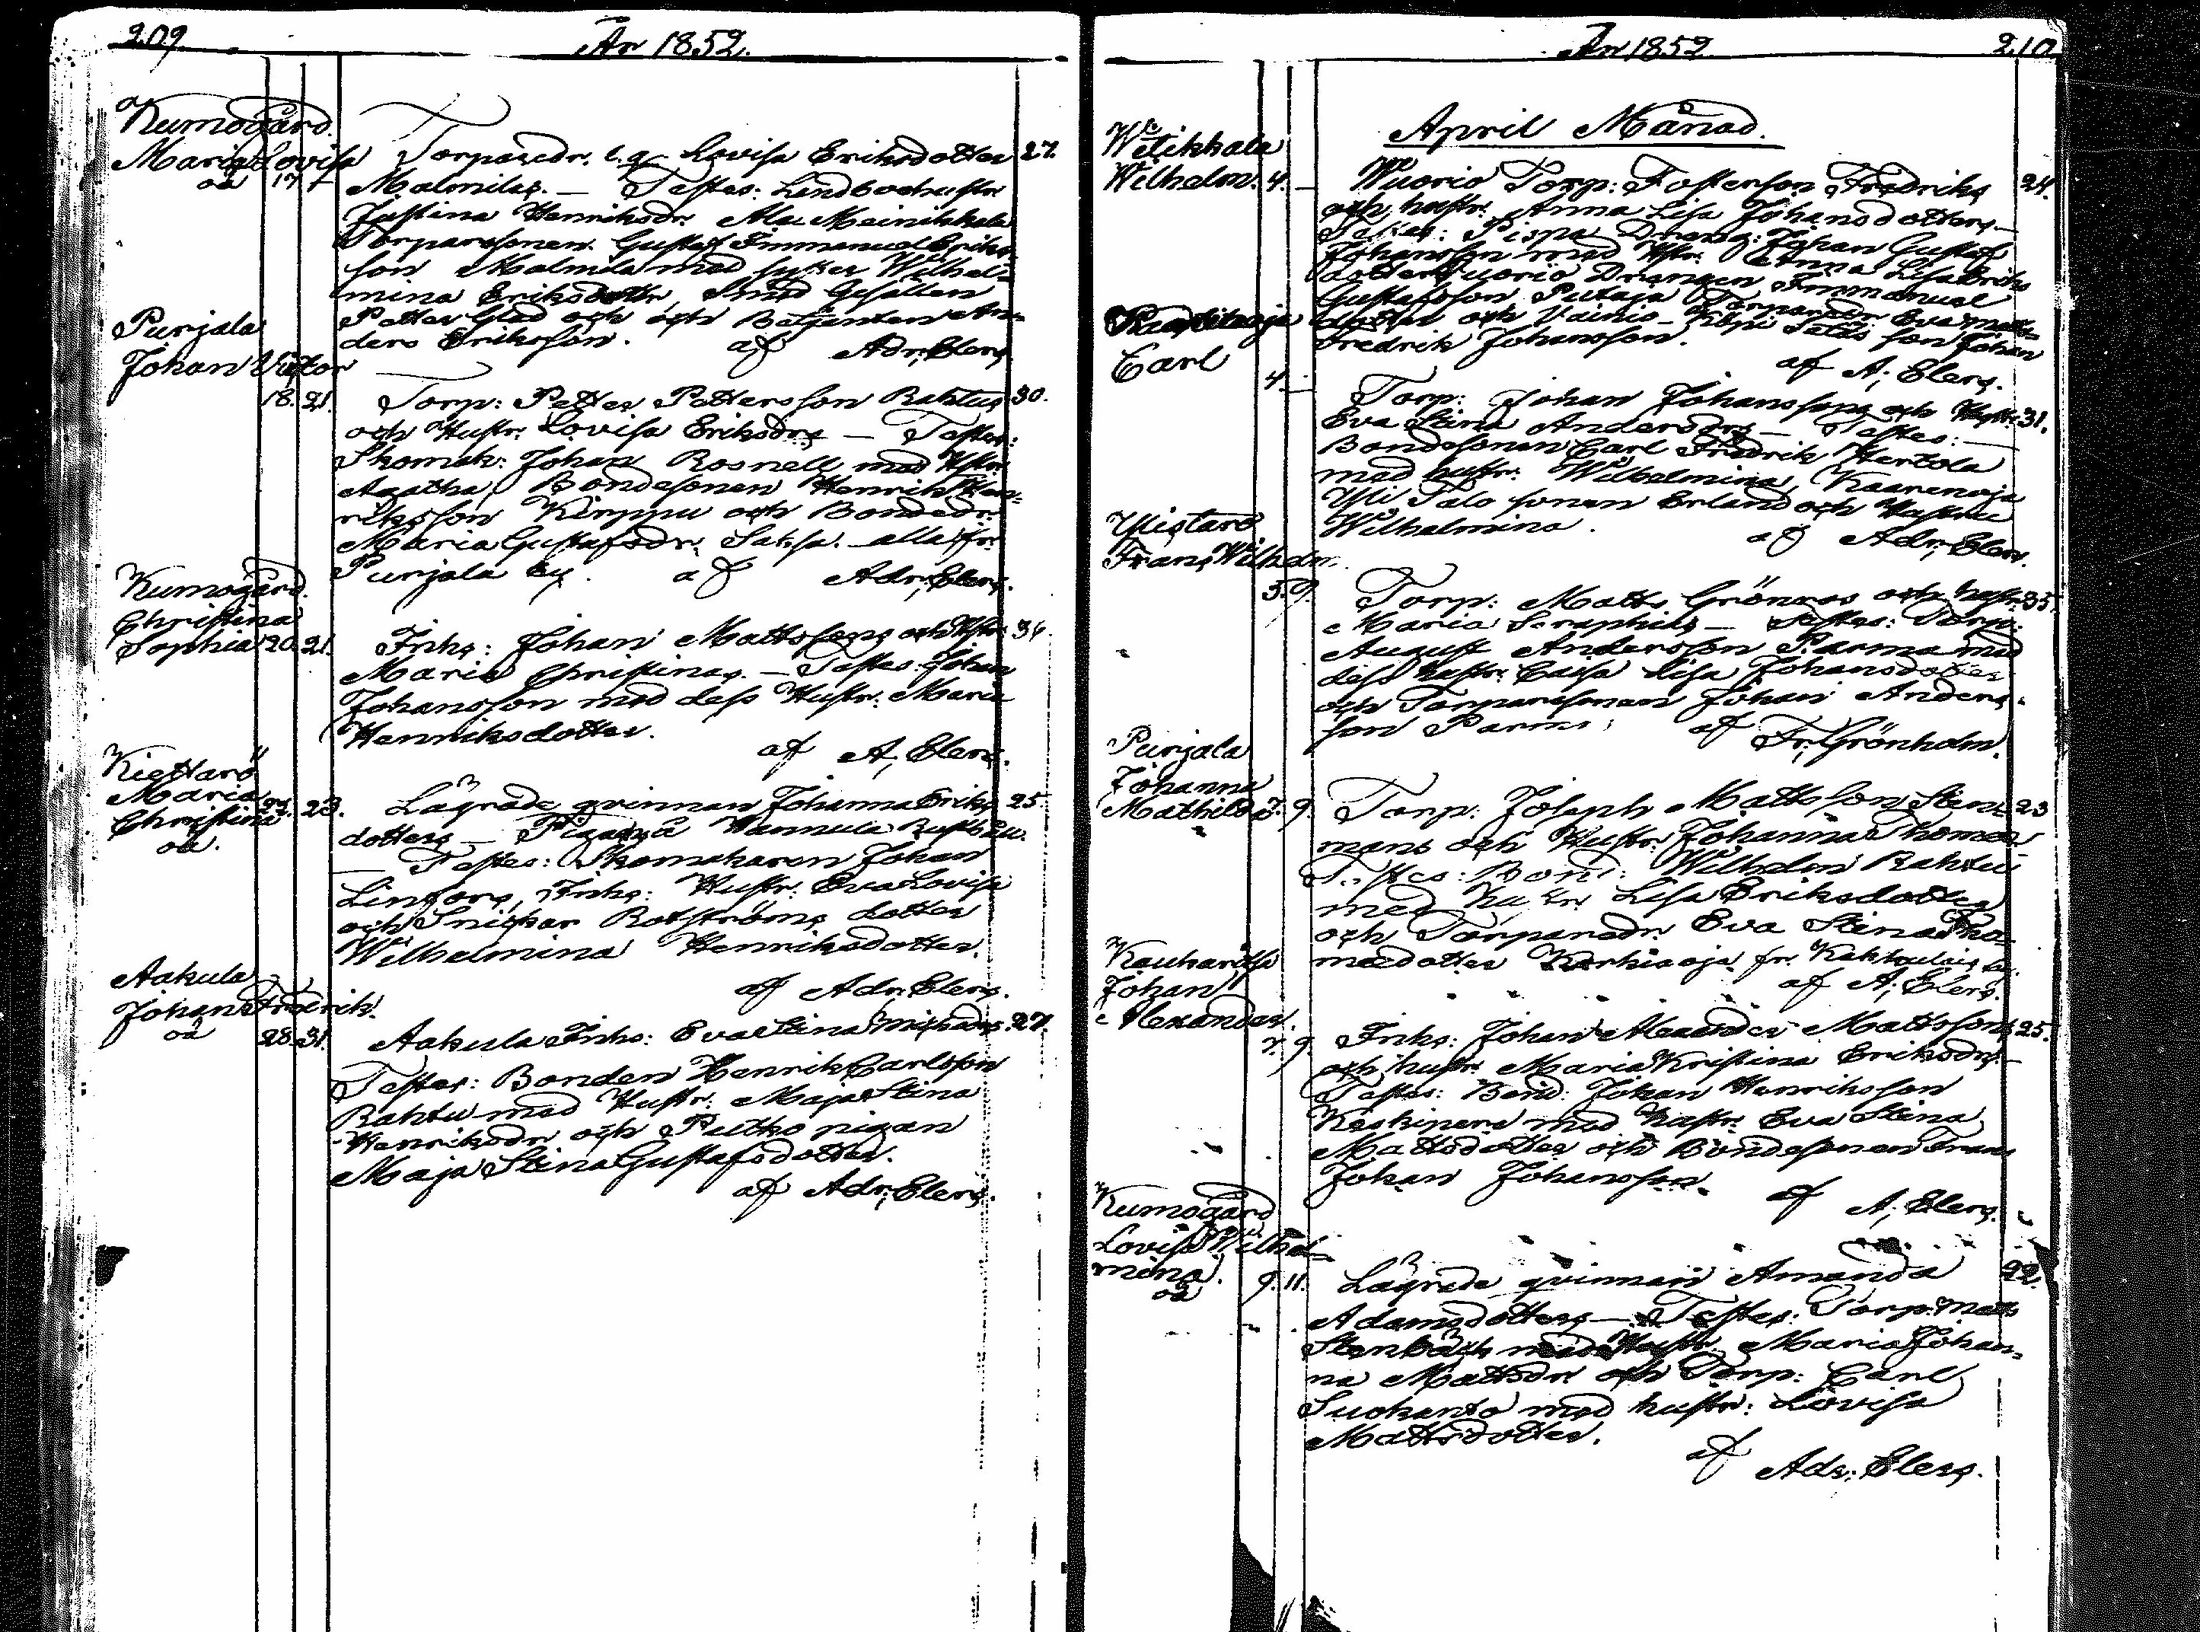 209
År 1852.
Kumogård.
Maria Lovisa
oä 17.
Torparedr. l.q. Lovisa Eriksdotter 27.
Malmilas. — Testes:
Justina Henriksdr. Ala
Torparesonen Gustaf Immanuel Eriks-
son Malmila med syster Wilhel-
mina Eriksdotter, Smed Gesällen
Petter och och Betjenten An-
ders Eriksson. af Adr; Elers.
Purjala
Johan Victor
18. 21.
Torp: Petter Pettersson Rahtus 30.
och Hustr: Lovisa Eriksdrs — Testes:
Skomak: Johan Rosnell med Hstr:
Agatha, Bondesonen Henrik Hen-
riksson Kirppu och Bondedr.
Maria Gustafsdr. Saksa. alla fr.
Purjala by. af Adr; Elers.
Kumogård.
Christina
Sophia 20. 21.
Inhs: Johan Mattssons och Hstr:
Maria Christinas. — Testes: Johan
Johansson med dess Hustr: Maria
Henriksdotter.
af A; Elers.
Kiettarö
Maria
Christina 23.
oä.
Lägrade qvinnan Johanna Eriks 25.
dotters —
Testes: Skomakaren Johan
Inhs: Hustr. Eva Lovisa
och Snickar Rotströms dotter
Wilhelmina Henriksdotter.
af Adr; Elers.
Aakula
Johan Fredrik.
oä 28. 31.
Aakula Inhs: Eva Stina 27.
Testes: Bonden Henrik Carlsson
Rahtu med Hustr: Maja Stina
Henriksdr och Puthko pigan
Maja Stina Gustafsdotter.
af Adr; Elers.
År 1852
210
April Månad.
Witikkala
Wilhelm. 4. —
Wuorio Torp: Fosterson Fredriks 24.
och hustr. Anna Lisa Johansdotters —
Testes: Pispa Dreng: Johan Gustaf
Johansson med Hstr: Anna Lisa Eriks
dotter Wuorio Drengen Immanuel
Gustafsson, Putaja Torparedr Eva
dotter och Vainio
Fredrik Johansson.
af A; Elers.
Carl
4 —
Torp: Johan Johanssons och Hustr: 31.
Eva Stina Andersdrs — Testes: —
Bondesonen Carl Fredrik Hertola
med hustr. Wilhelmina, Kaarenoja
Yli Talo sonen Erland och Hustrue
Wilhelmina. af Adr; Elers.
Ylistaro
Frans Wilhelm.
5. 9.
Torp: Matts Grönroos och hustr: 35.
Maria Seraphias — Testes: Torp:
August Andersson Parma med
dess hustr: Caisa Lisa Johansdotter
och Torparesonen Johan Anders-
son Parma; af Fr; Grönholm.
Purjala
Johanna
Mathilda 7. 9.
Torp: Joseph Mattsson Sten- 23
mans och Hustr: Johanna Thomæ
Testes: Bond: Wilhelm Rahtu
med Hustr: Lisa Eriksdotter
och Torparedr. Eva Stina Tho-
mædotter
af A; Elers.
Kauhanoja
Johan
Alexander.
7. 9.
Inhs: Johan Alexander Mattssons 25.
och hustr. Maria Kristina Eriksdrs —
Testes: Bond: Johan Henriksson
Keskipere med hustr: Eva Stina
Mattsdotter och Bondesonen Frans
Johan Johansson.
af A; Elers.
Kumogård
Lovisa Wilhel-
mina.
oä 9. 11.
Lägrade qvinnan Amanda 22.
Adamsdotters — Testes: Torp: Matts
Stenbäck med Hustr. Maria Johan-
na Mattsdr och Torp: Carl
Suokanto med hustr: Lovisa
Mattsdotter.
af Adr: Elers.